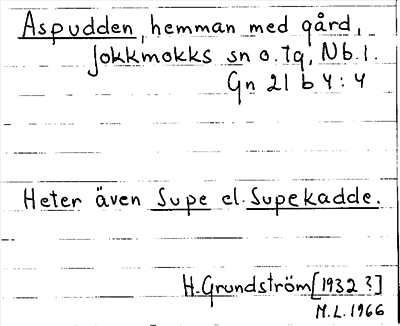 Aspudden, hemman med gård,
Jokkmokks sn o. tg, Nb. l.
Gn 21 b 4 : 4
Heter även Supe el. Supekadde.
H. Grundström [1932 ?]
M. L. 1966